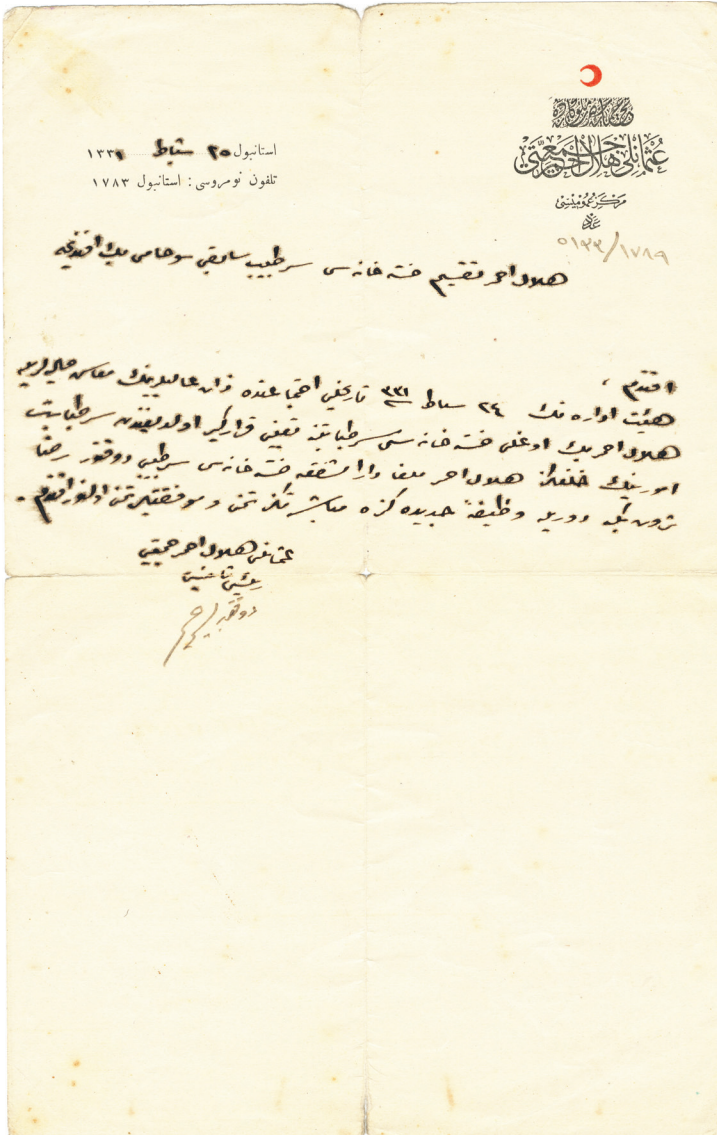 عثمانلى هلال احمر جمعيتى
مركز عموميسى
عدد
٥١٣٣/١٧٨٩
استانبول ٢٥ شباط ١٣٣١
تلفون نومروسى : استانبول ١٧٨٣
هلال احمر تقسيم خسته خانه سى سرطبيب سابقى سهامى بك افندى يه
افندم ،
هيئت اداره نك ٢٤ شباط ٣٣١ تاريخلى اجتماعنده ذات عاليلرينك معاش
هلال احمر بك اوغلى خسته خانه سى سرطبابتنه تعيينى قراركير اولديغندن سرطبابت
امورينك خلفكز هلال احمر دار الشفقه خسته خانه سى سرطبيبى دوقتور رضا
بكه دوريله وظيفهٔ جديده كزه مباشرتكز تمنى و موفقيتكز تمنى اولنور افندم .
عثمانلى هلال احمر جمعيتى
رئيس ثانيسى
دوقتور